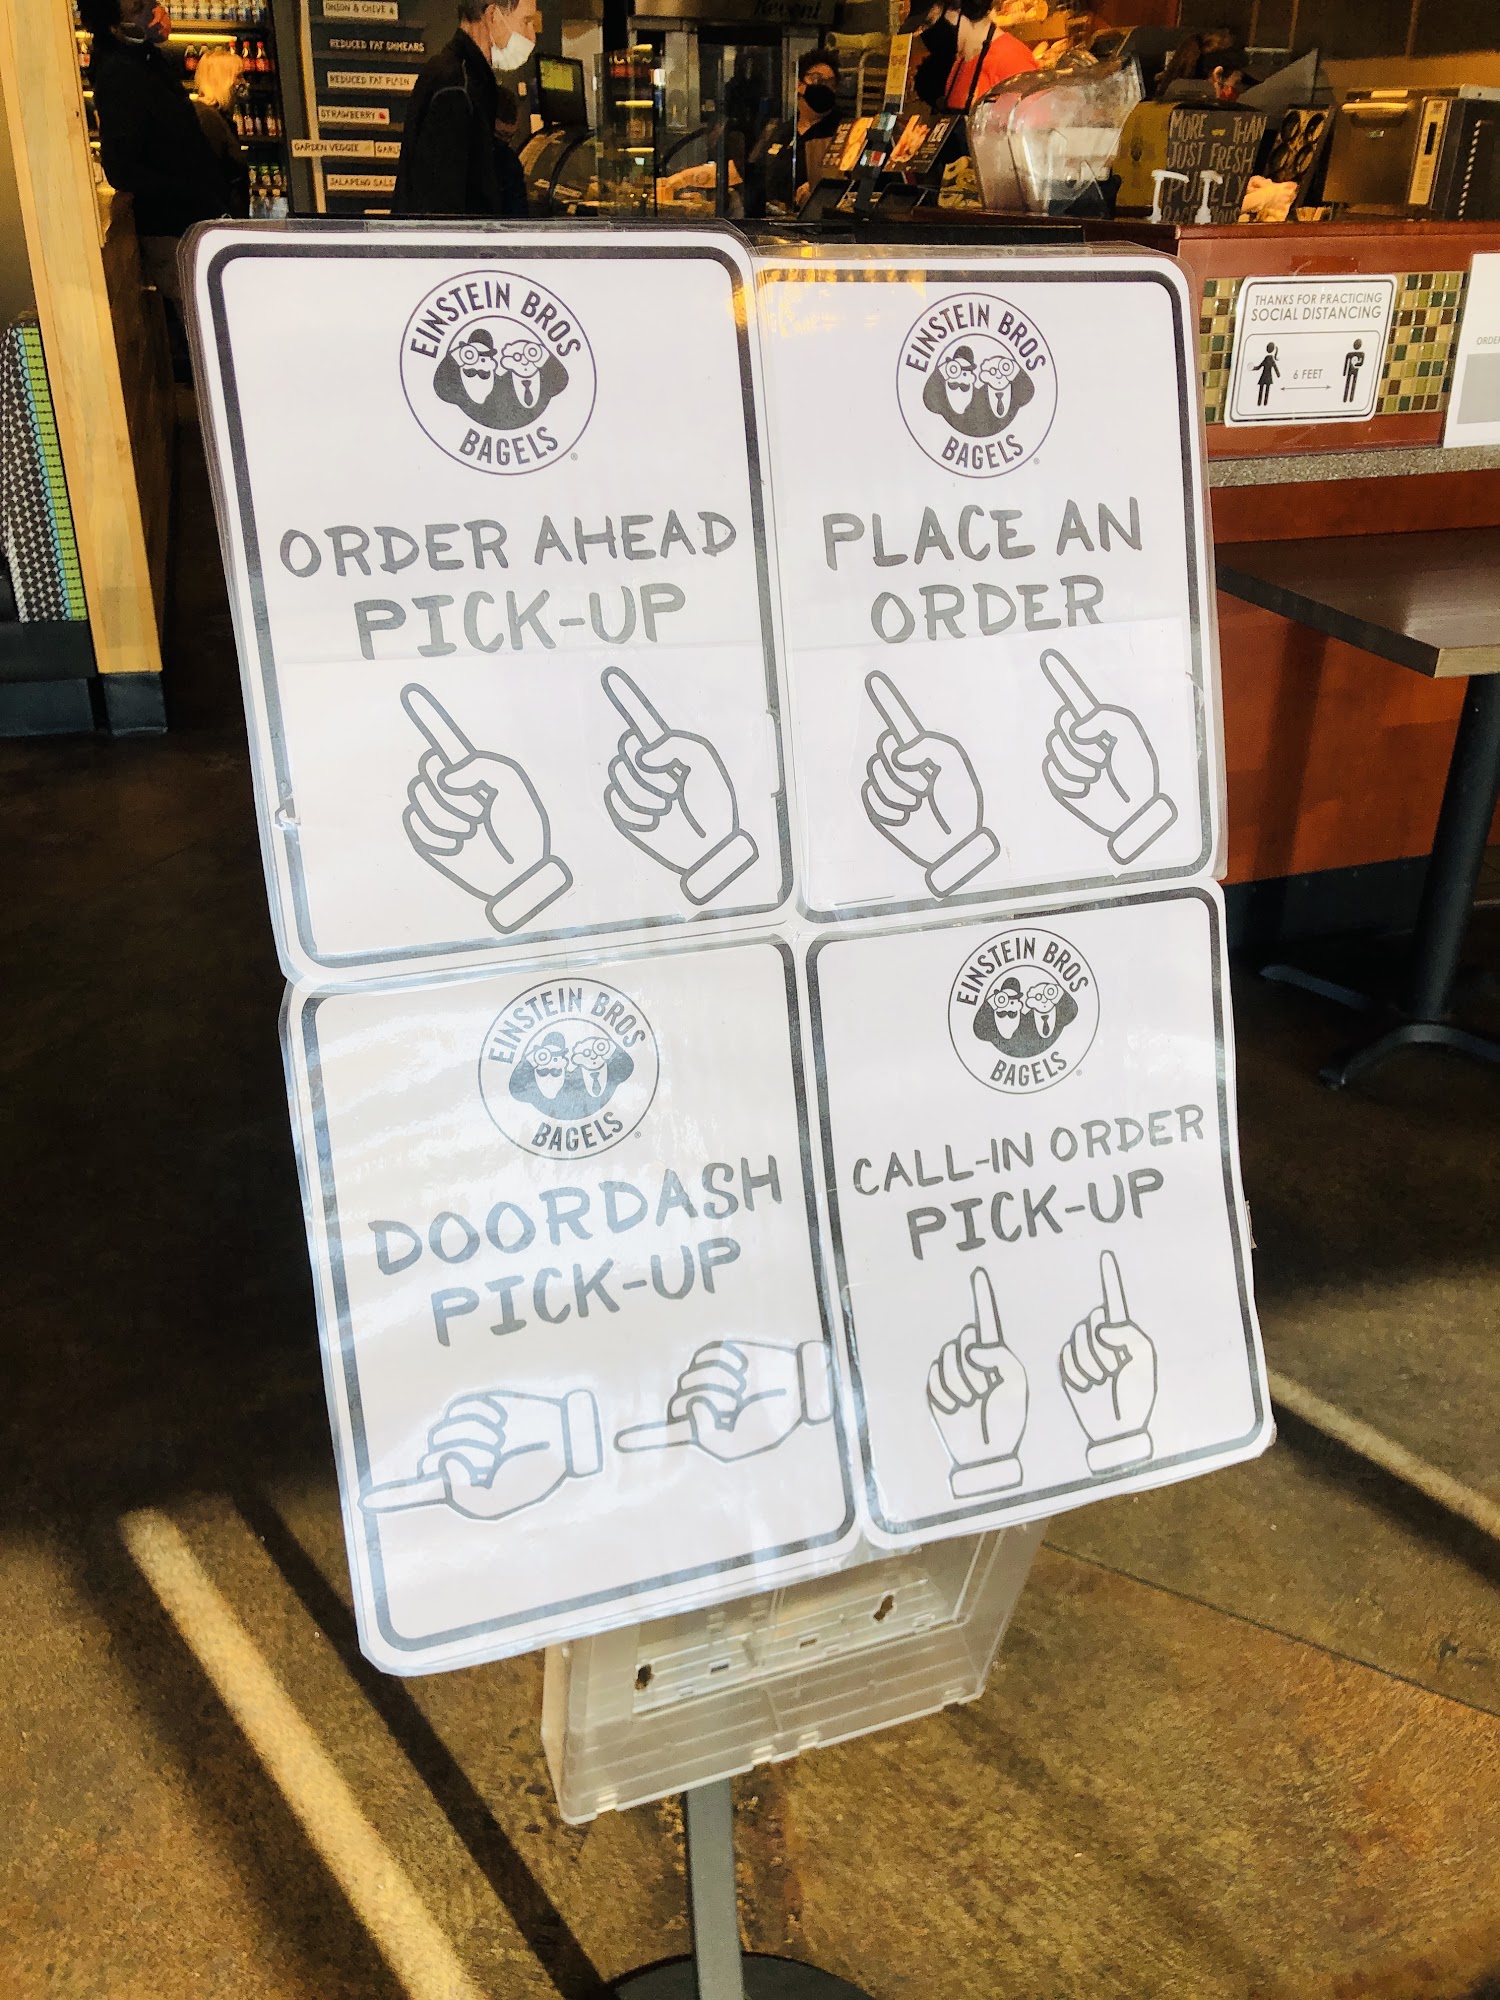 ONION & CHIVE
REDUCED FAT SHMEARS
REDUCED FAT PLAIN
STRAWBERRY
GARDEN VEGGIE
JALAPENO SALS
MORE THAN
JUST FRESH
THANKS FOR PRACTICING
SOCIAL DISTANCING
6 FEET
EINSTEIN BROS
BAGELS
ORDER AHEAD
PICK-UP
EINSTEIN BROS
BAGELS
PLACE AN
ORDER
EINSTEIN BROS
BAGELS
DOORDASH
PICK-UP
EINSTEIN BROS
BAGELS
CALL-IN ORDER
PICK-UP